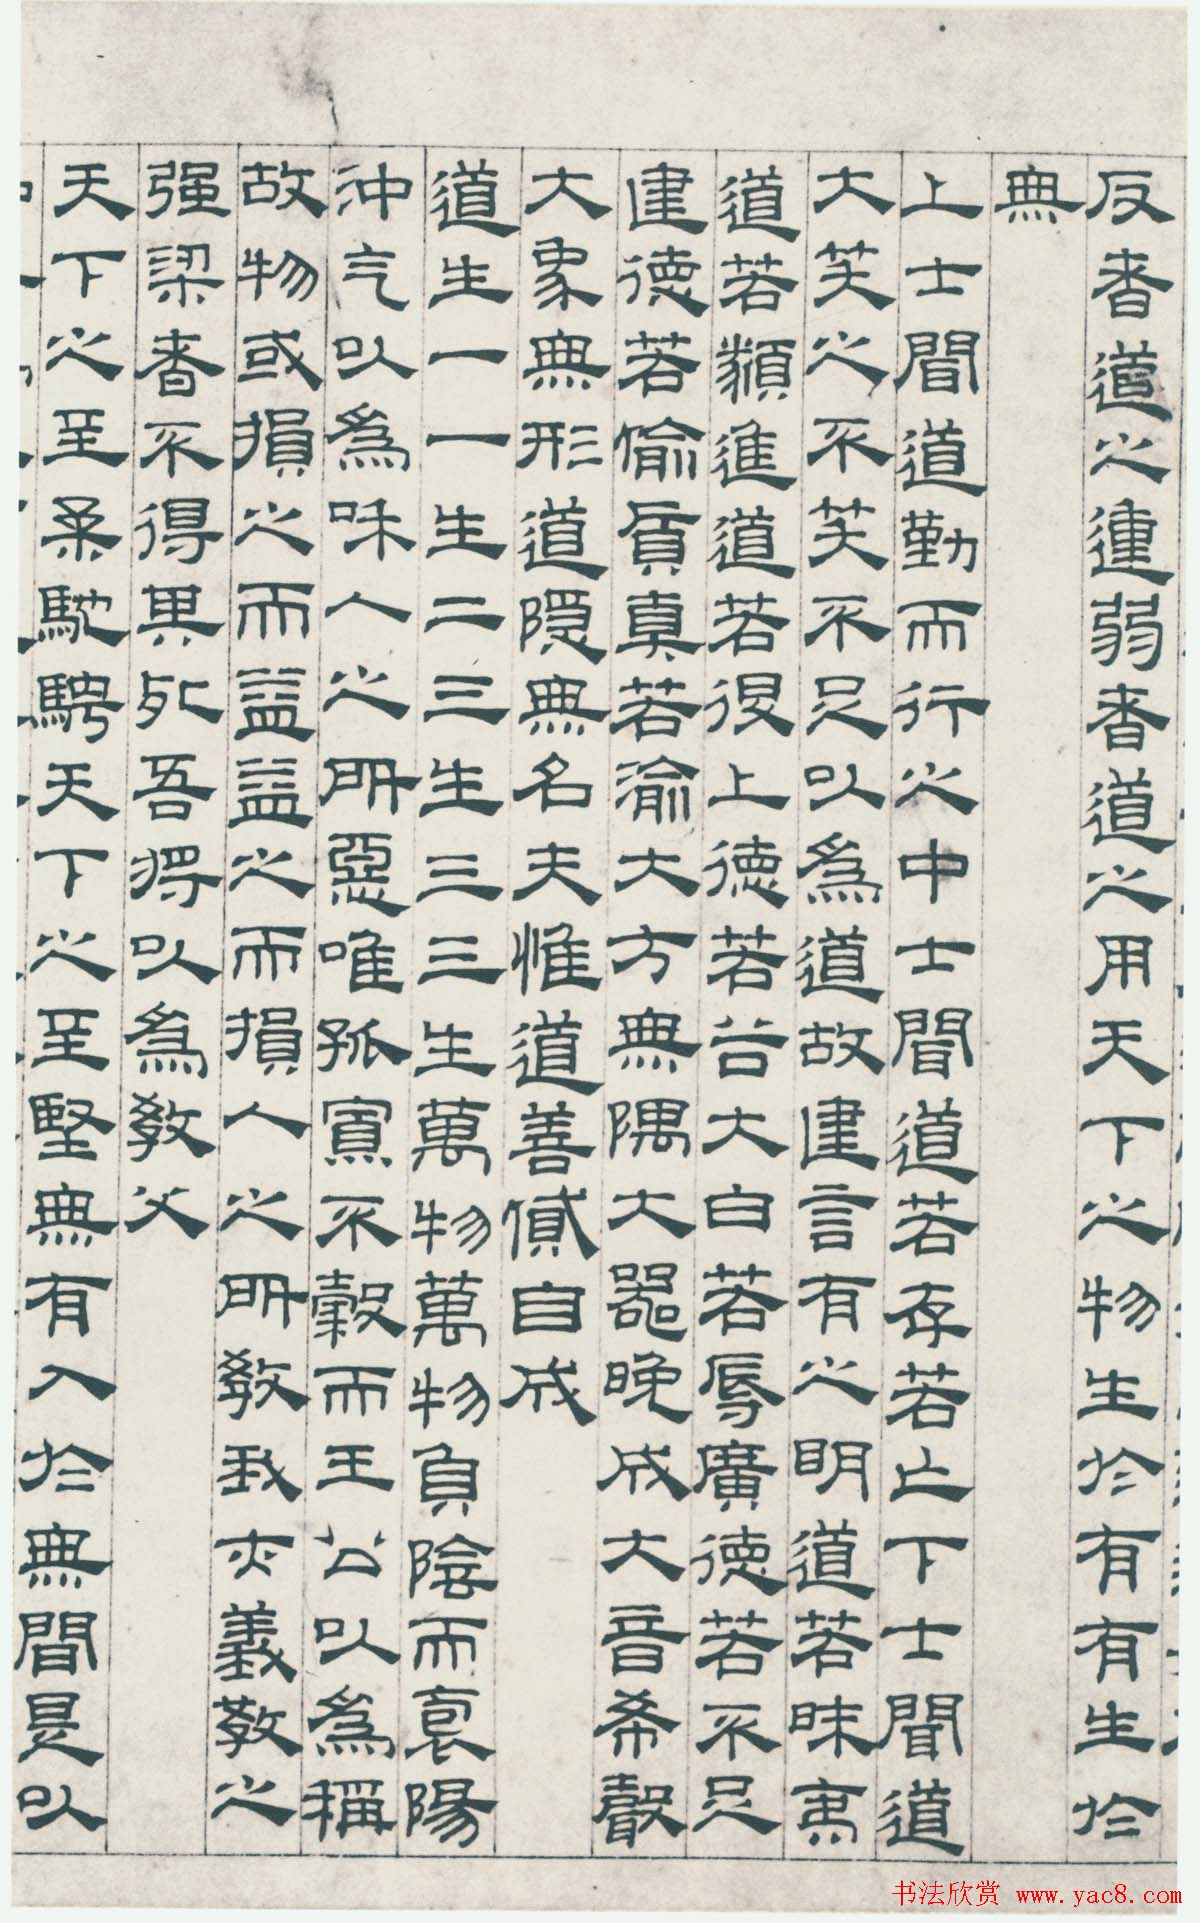 反者道之動弱者道之用天下之物生於有有生於
無
上士聞道勤而行之中士聞道若存若亡下士聞道
大笑之不笑不足以為道故建言有之明道若昧夷
道若纇進道若退上德若谷大白若辱廣德若不足
建德若偷質真若渝大方無隅大器晚成大音希聲
大象無形道隱無名夫惟道善貸自成
道生一一生二三生三三生萬物萬物負陰而袌陽
沖气以為咊人之所惡唯孤寡不穀而王公以為稱
故物或損之而益益之而損人之所教我亦義教之
强梁者不得其死吾將以為教父
天下之至柔馳騁天下之至堅無有入於無間是以
书法欣赏 www.yac8.com